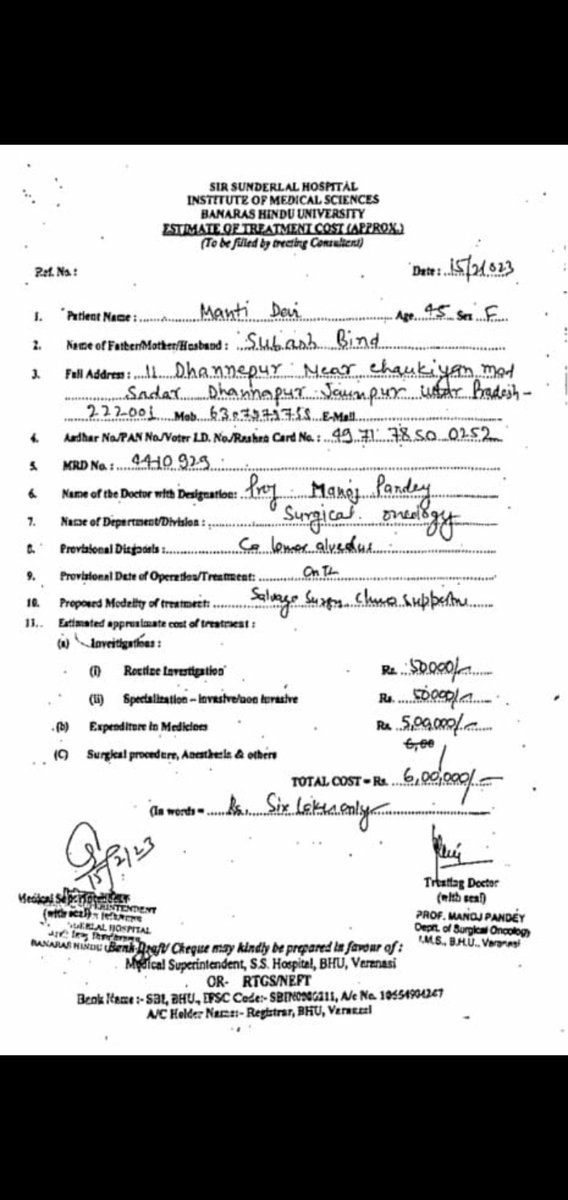 SIR SUNDERLAL HOSPITAL
INSTITUTE OF MEDICAL SCIENCES
BANARAS HINDU UNIVERSITY
ESTIMATE OF TREATMENT COST (APPROX.)
(To be filled by treating Consultant)
Ref. No. : Date : 15/2/2023
1. Patient Name : Manti Devi Age 45 Sex F
2. Name of Father/Mother/Husband : Subash Bind
3. Full Address : 11 Dhannepur Near Chaukiyan mod
Sadar Dhannopur Jaunpur Uttar Pradesh -
222001 Mob E-Mail
4. Aadhar No/PAN No/Voter I.D. No/Rashan Card No. : 4971 7850 0252
5. MRD No. : 4410929
6. Name of the Doctor with Designation: Prof. Manoj Pandey
7. Name of Department/Division : Surgical oncology
8. Provisional Diagnosis : Ca lower alveolus
9. Provisional Date of Operation/Treatment:
10. Proposed Modality of treatment: Salvage Surgery Chemo Supportive
11. Estimated approximate cost of treatment :
(a) Investigations :
(i) Routine Investigation Rs. 50000/-
(ii) Specialization – invasive/non invasive Rs. 50000/-
(b) Expenditure in Medicines Rs. 5,00,000/-
6,00
(C) Surgical procedure, Anesthesia & others
TOTAL COST = Rs. 6,00,000/-
(In words = Rs. Six Lakhs only
15/2/23
Medical Superintendent
(with seal)
SUPERINTENDENT
SUNDERLAL HOSPITAL
BANARAS HINDU
Treating Doctor
(with seal)
PROF. MANOJ PANDEY
Deptt. of Surgical Oncology
I.M.S., B.H.U., Varanasi
Bank Draft/ Cheque may kindly be prepared in favour of :
Medical Superintendent, S.S. Hospital, BHU, Varanasi
OR- RTGS/NEFT
Bank Name :- SBI, BHU., IFSC Code:- A/c No.
A/C Holder Name:- Registrar, BHU, Varanasi